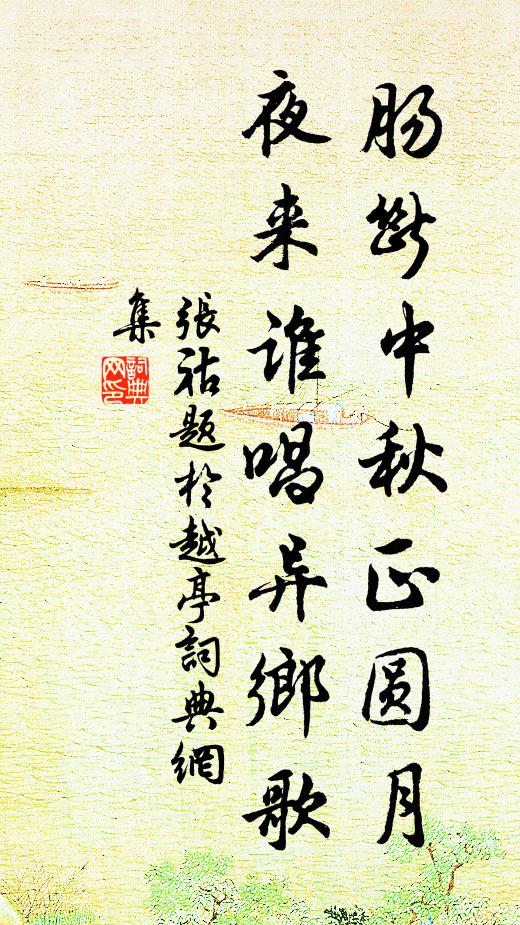 肠断中秋正圆月
夜来谁唱异鄉歌
張祜題於越亭詞典網
集
詞典
网印